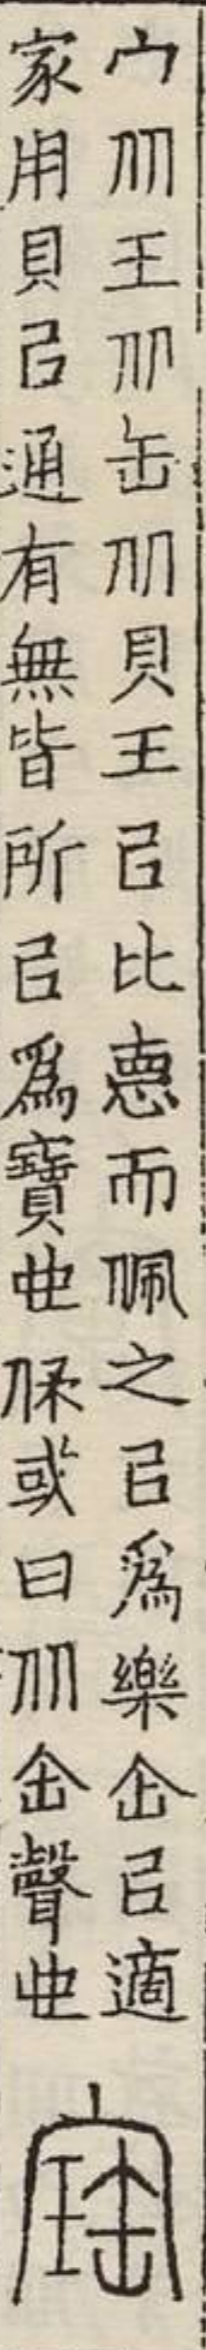 宀从王从缶从貝王㠯比悳而佩之㠯爲樂缶㠯適
家用貝㠯通有無皆所㠯爲寶也保或曰从缶聲也